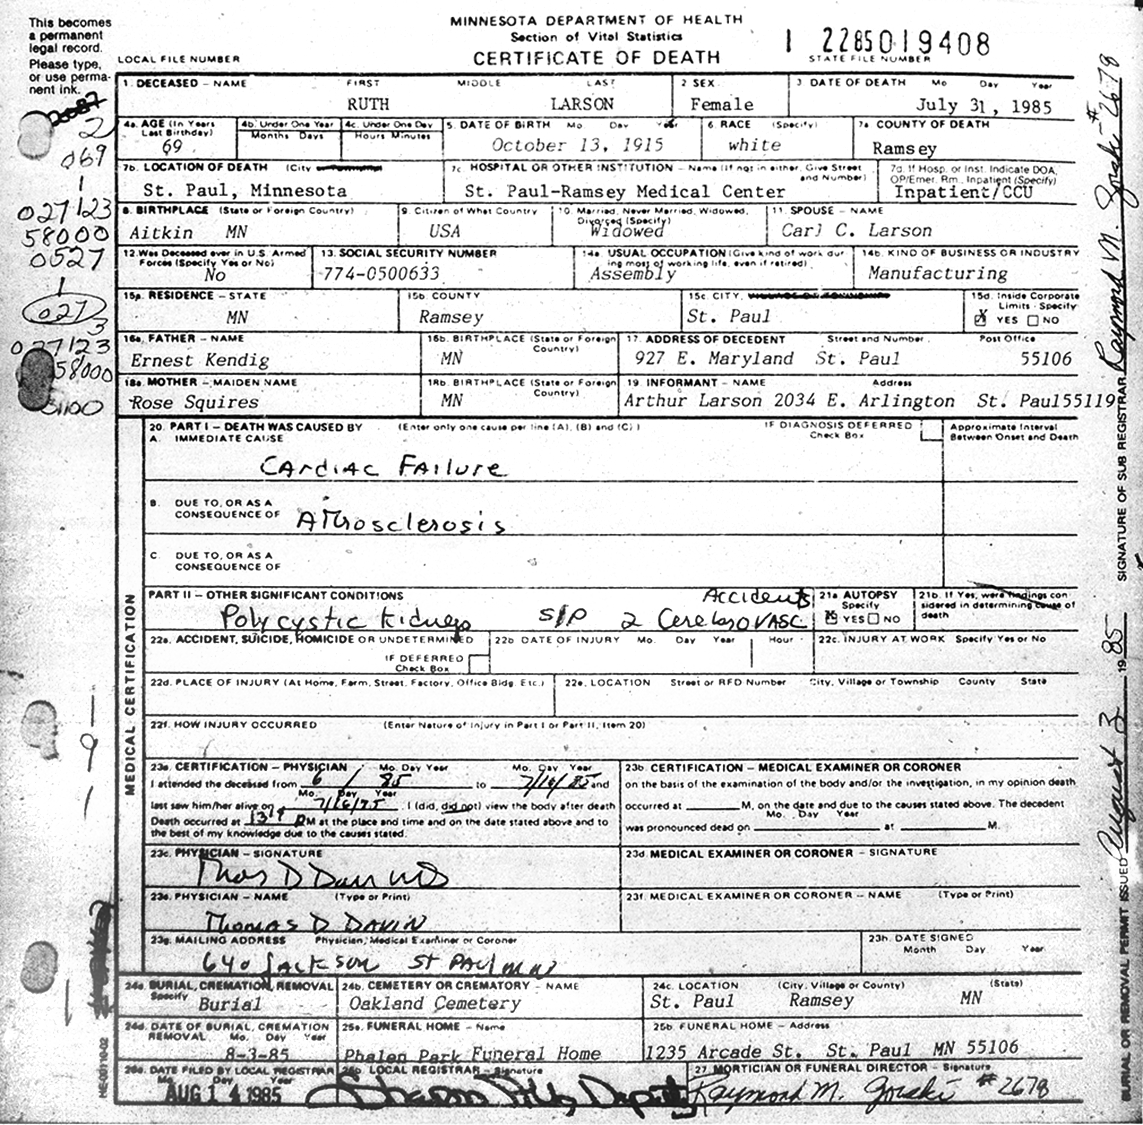 This becomes
a permanent
legal record.
Please type,
or use perma-
nent ink.
MINNESOTA DEPARTMENT OF HEALTH
Section of Vital Statistics
CERTIFICATE OF DEATH
LOCAL FILE NUMBER
1 2285019408
STATE FILE NUMBER
1 DECEASED – NAME FIRST MIDDLE LAST 2 SEX 3 DATE OF DEATH Mo Day Year
RUTH LARSON Female July 31, 1985
4a. AGE (In Years Last Birthday) 4b. Under One Year Months Days 4c. Under One Day Hours Minutes 5. DATE OF BIRTH Mo. Day Year 6. RACE (Specify) 7a COUNTY OF DEATH
69 October 13, 1915 white Ramsey
7b. LOCATION OF DEATH (City 7c HOSPITAL OR OTHER INSTITUTION – Name (If not in either, Give Street and Number) 7d. If Hosp. or Inst. Indicate DOA, OP/Emer. Rm., Inpatient (Specify)
St. Paul, Minnesota St. Paul-Ramsey Medical Center Inpatient/CCU
8. BIRTHPLACE (State or Foreign Country) 9. Citizen of What Country 10. Married, Never Married, Widowed, Divorced (Specify) 11. SPOUSE – NAME
Aitkin MN USA Widowed Carl C. Larson
12. Was Deceased ever in U.S. Armed Forces (Specify Yes or No) 13. SOCIAL SECURITY NUMBER 14a. USUAL OCCUPATION (Give kind of work during most of working life, even if retired) 14b. KIND OF BUSINESS OR INDUSTRY
No 774-0500633 Assembly Manufacturing
15a. RESIDENCE – STATE 15b. COUNTY 15c. CITY, 15d. Inside Corporate Limits - Specify
MN Ramsey St. Paul X YES NO
16a. FATHER – NAME 16b. BIRTHPLACE (State or Foreign Country) 17. ADDRESS OF DECEDENT Street and Number Post Office
Ernest Kendig MN 927 E. Maryland St. Paul 55106
18a. MOTHER – MAIDEN NAME 18b. BIRTHPLACE (State or Foreign Country) 19. INFORMANT – NAME Address
Rose Squires MN Arthur Larson 2034 E. Arlington St. Paul 55119
2
069
1
027123
58000
0527
1
027
3
027123
58000
20. PART I – DEATH WAS CAUSED BY (Enter only one cause per line (A), (B) and (C)) IF DIAGNOSIS DEFERRED Check Box Approximate Interval Between Onset and Death
A. IMMEDIATE CAUSE
Cardiac Failure
B. DUE TO, OR AS A CONSEQUENCE OF
Athrosclerosis
C. DUE TO, OR AS A CONSEQUENCE OF
PART II – OTHER SIGNIFICANT CONDITIONS 21a AUTOPSY Specify 21b. If Yes, were findings considered in determining cause of death
Polycystic kidneys S/P 2 Cerebrovasc. Accidents X YES NO
22a. ACCIDENT, SUICIDE, HOMICIDE OR UNDETERMINED 22b DATE OF INJURY Mo. Day Year Hour 22c. INJURY AT WORK Specify Yes or No
IF DEFERRED Check Box
22d. PLACE OF INJURY (At Home, Farm, Street, Factory, Office Bldg. Etc.) 22e. LOCATION Street or RFD Number City, Village or Township County State
22f. HOW INJURY OCCURRED (Enter Nature of Injury in Part I or Part II, Item 20)
MEDICAL CERTIFICATION
23a. CERTIFICATION – PHYSICIAN Mo. Day Year Mo. Day Year
I attended the deceased from 6 / 85 to 7/16/85 and
Mo. Day Year
last saw him/her alive on . I (did, did not) view the body after death
Death occurred at M at the place and time and on the date stated above and to
the best of my knowledge due to the causes stated.
23b CERTIFICATION – MEDICAL EXAMINER OR CORONER
on the basis of the examination of the body and/or the investigation, in my opinion death
occurred at M, on the date and due to the causes stated above. The decedent
Mo. Day Year
was pronounced dead on at M.
23c. PHYSICIAN – SIGNATURE 23d. MEDICAL EXAMINER OR CORONER – SIGNATURE
23e. PHYSICIAN – NAME (Type or Print) 23f. MEDICAL EXAMINER OR CORONER – NAME (Type or Print)
Thomas D Davin
23g. MAILING ADDRESS Physician, Medical Examiner or Coroner 23h. DATE SIGNED Month Day Year
640 Jackson St Paul mn
24a. BURIAL, CREMATION, REMOVAL Specify 24b. CEMETERY OR CREMATORY – NAME 24c. LOCATION (City, Village or County) (State)
Burial Oakland Cemetery St. Paul Ramsey MN
24d. DATE OF BURIAL, CREMATION REMOVAL Mo. Day Year 25a. FUNERAL HOME – Name 25b. FUNERAL HOME – Address
8-3-85 Phalen Park Funeral Home 1235 Arcade St. St. Paul MN 55106
26a. DATE FILED BY LOCAL REGISTRAR Mo. Day Year 26b. LOCAL REGISTRAR – Signature 27. MORTICIAN OR FUNERAL DIRECTOR – Signature
AUG 14 1985 Raymond M. Gorski #2678
HE-00110-02
BURIAL OR REMOVAL PERMIT ISSUED August 3 1985 SIGNATURE OF SUB REGISTRAR Raymond M. Gorski #2678